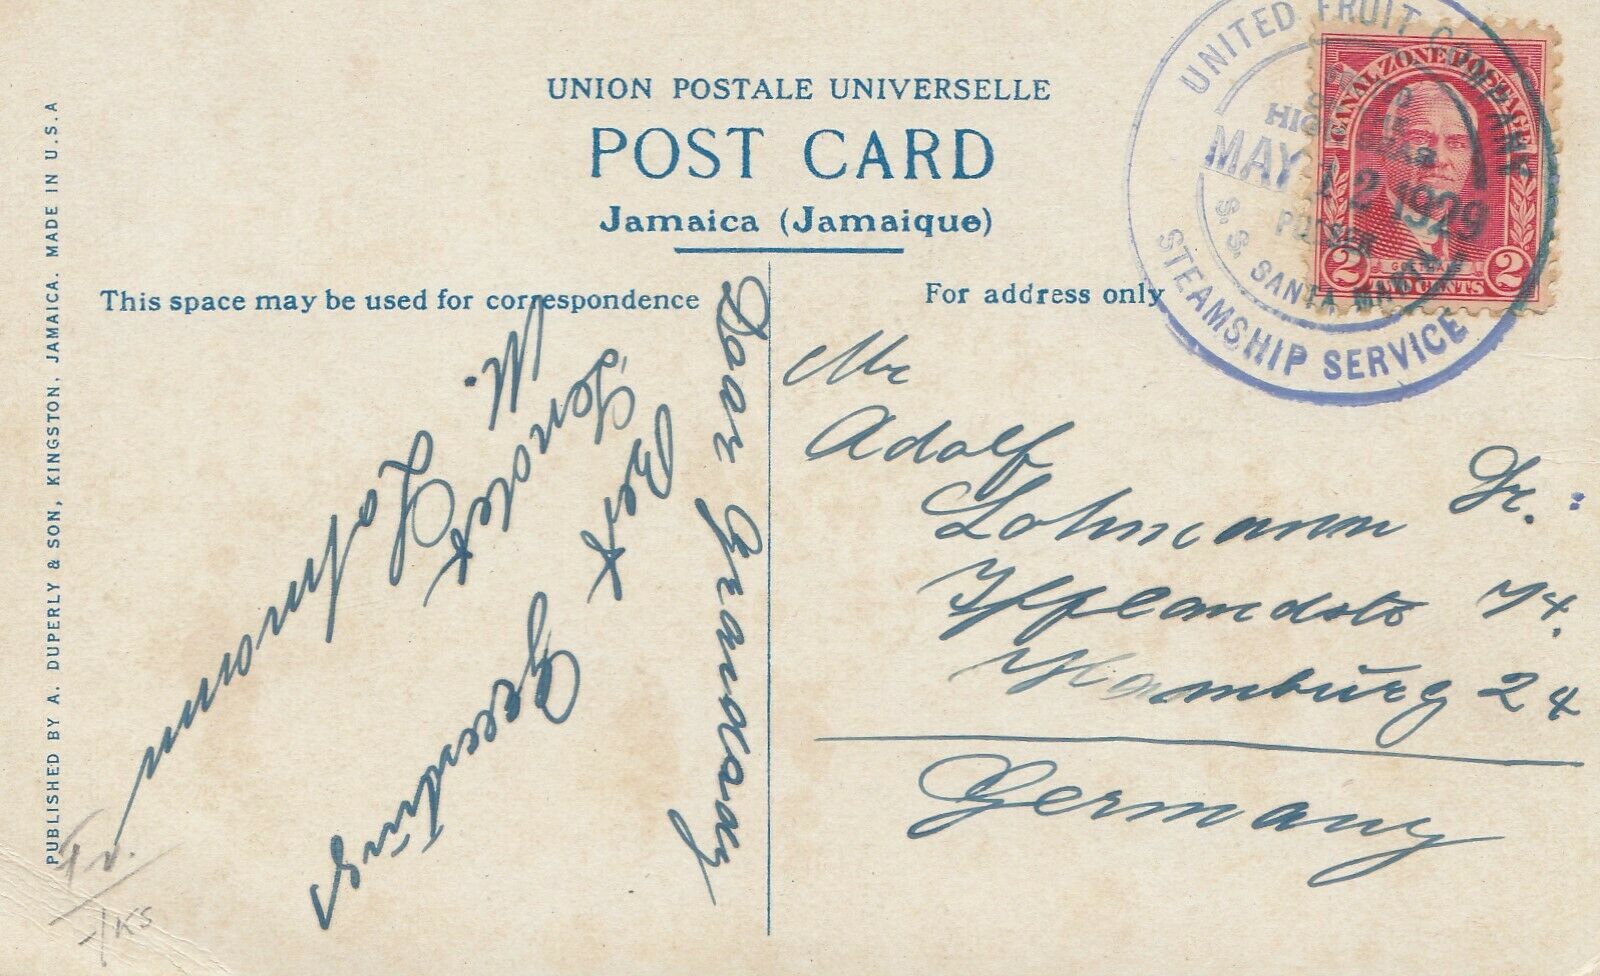 UNION POSTALE UNIVERSELLE
POST CARD
Jamaica (Jamaique)
This space may be used for correspondence
For address only
PUBLISHED BY A. DUPERLY & SON, KINGSTON, JAMAICA. MADE IN U.S.A
UNITED FRUIT COMPANY
HIGH SEAS
MAY 12 1929
PURSER
S. S. SANTA MARTA
STEAMSHIP SERVICE
CANAL ZONE POSTAGE
2 2
TWO CENTS
Dear Grandaay
Best Greetings
M.
Mr
Adolf
Lohmann Sr.
74.
Hamburg 24
Germany